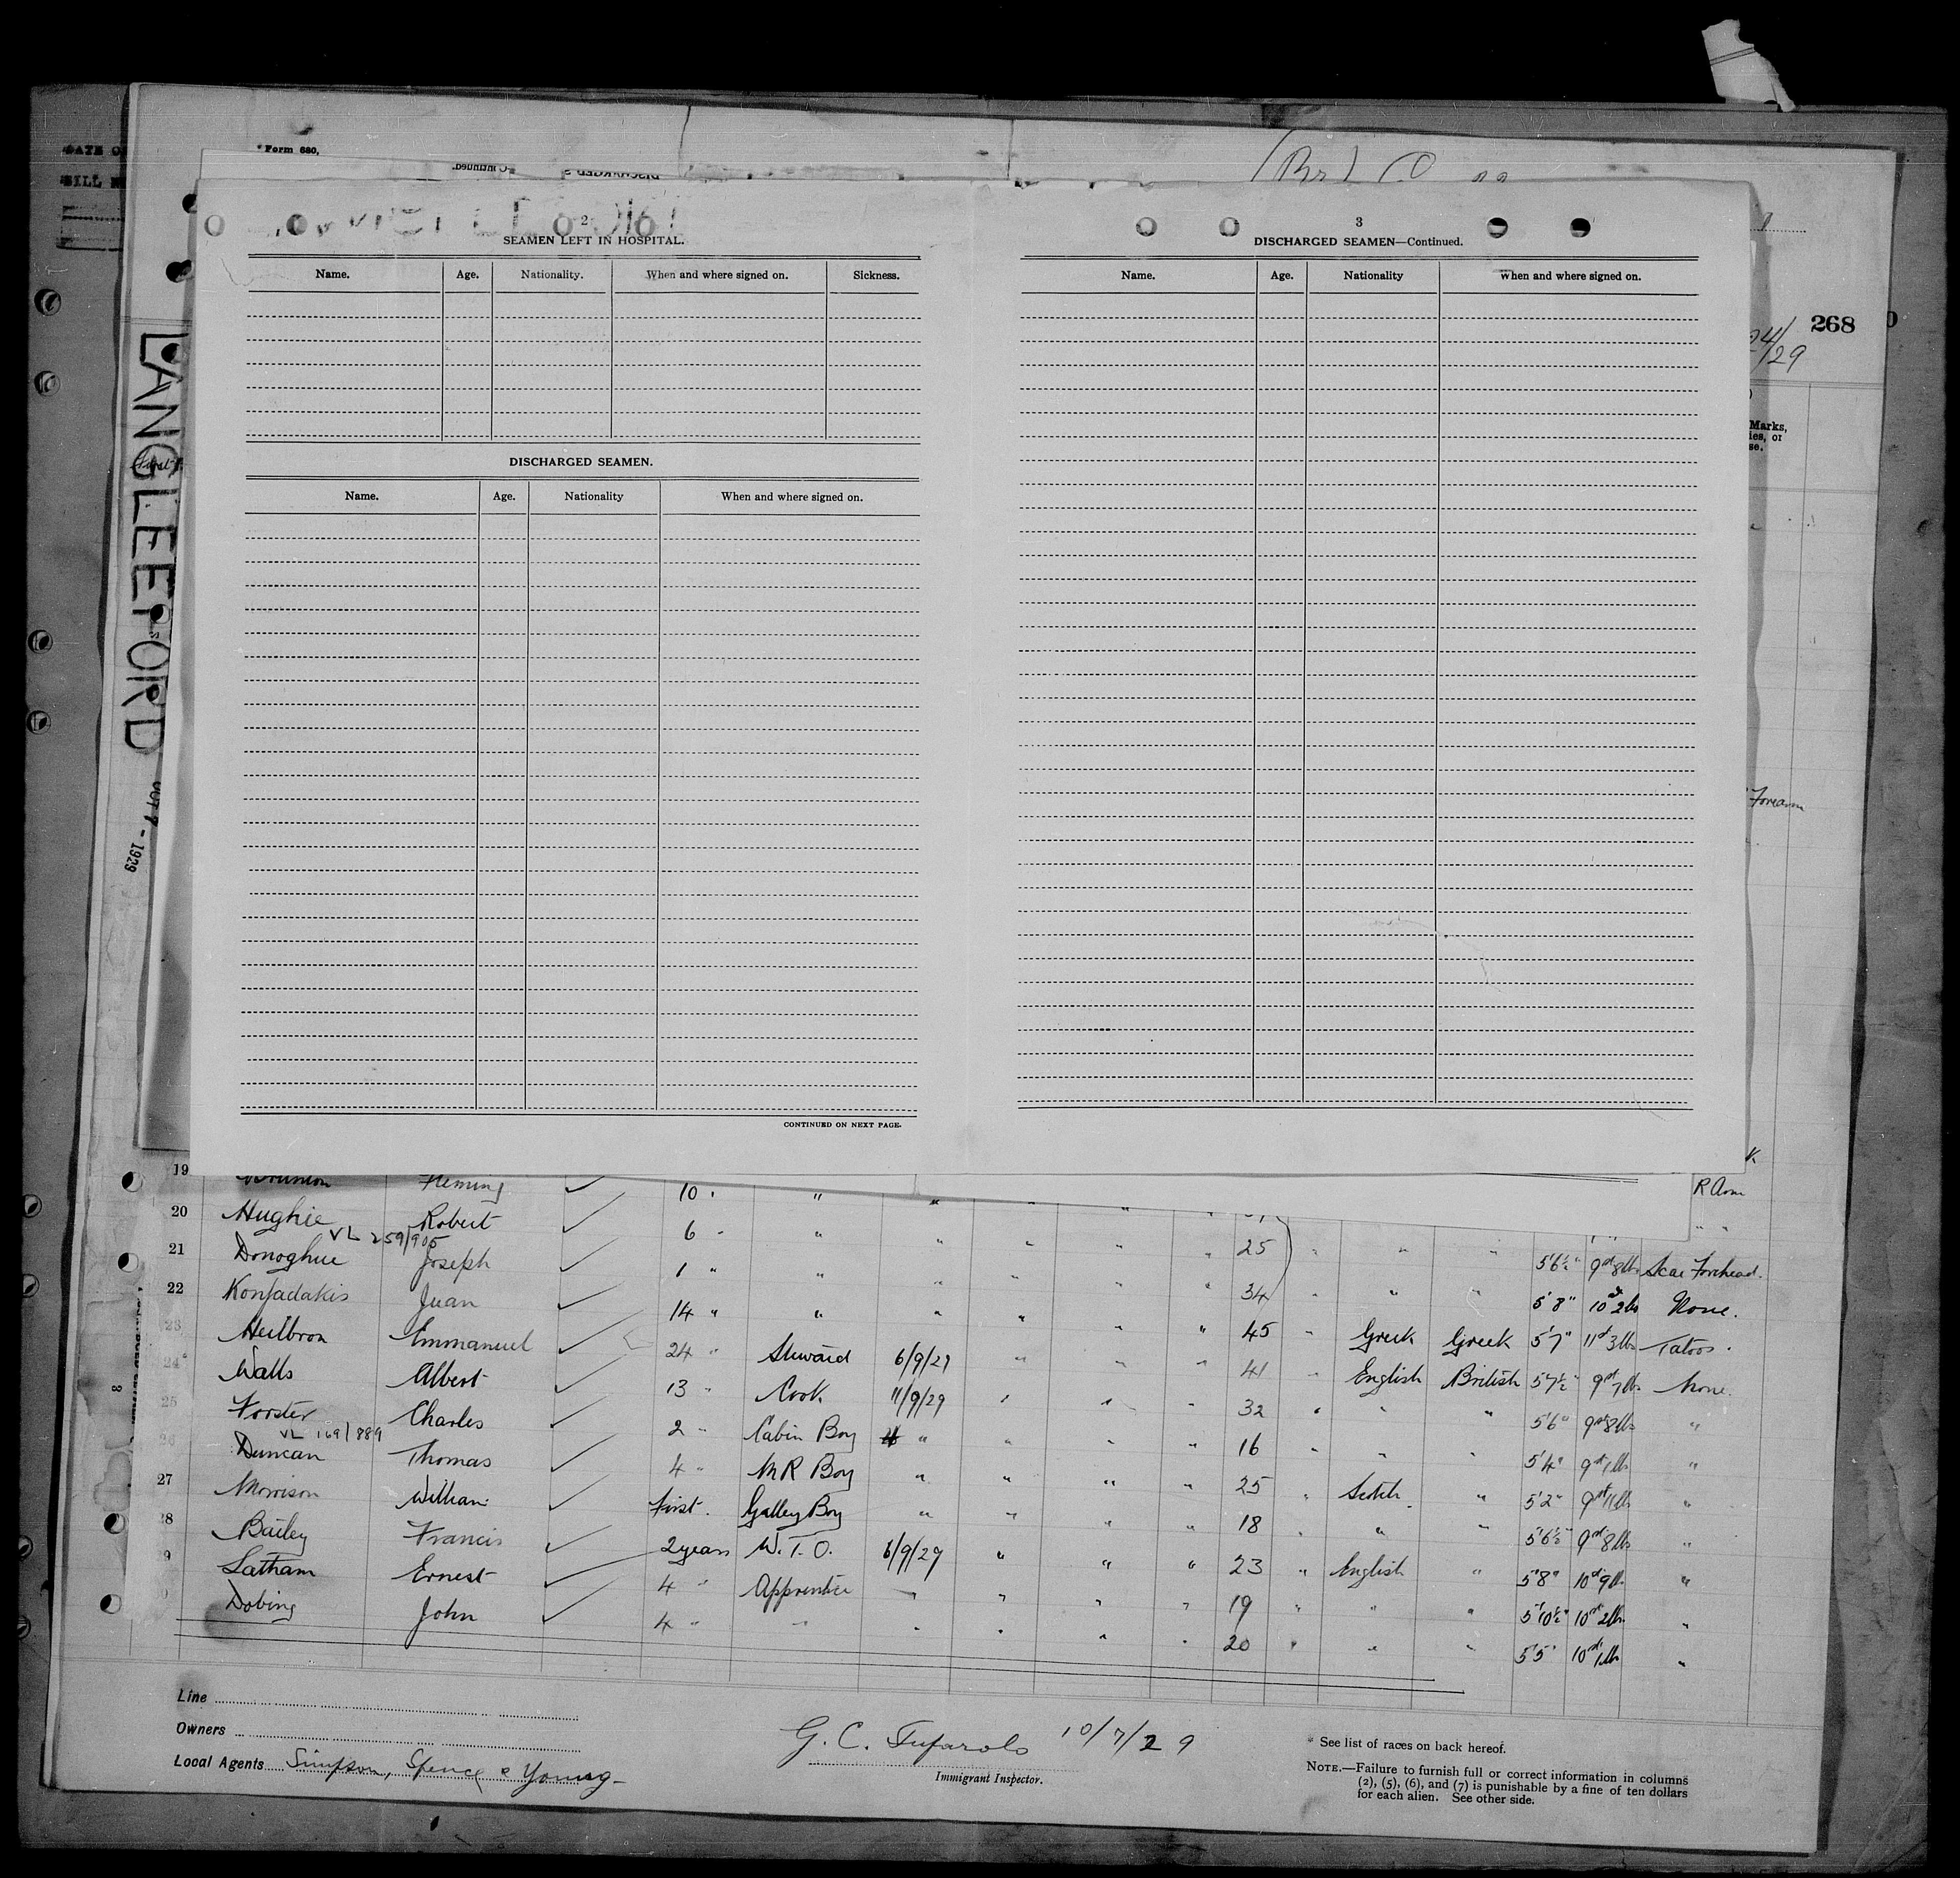 Form 680,
268
2
SEAMEN LEFT IN HOSPITAL.
Name. Age. Nationality. When and where signed on. Sickness.
DISCHARGED SEAMEN.
Name. Age. Nationality When and where signed on.
CONTINUED ON NEXT PAGE.
3
DISCHARGED SEAMEN—Continued.
Name. Age. Nationality When and where signed on.
LANGLEEFORD
OCT 7 - 1929
Marks,
Forearm
R Arm
19 10 " "
20 Hughie Robert 6 " " 25
VL 259/905
21 Donoghue Joseph 1 " " 34 5'6½" 9st 8lbs Scar Forehead.
22 Konfadakis Juan 14 " " 45 Greek Greek 5'8" 10st 2lbs None.
23 Heilbron Emmanuel 24 " Steward 6/9/29 41 English British 5'7" 11st 3lbs Tatoos.
24 Walls Albert 13 " Cook 11/9/29 32 " " 5'7½" 9st 7lbs None.
25 Forster Charles 2 " Cabin Boy " 16 " " 5'6" 9st 8lbs "
VL 169/889
26 Duncan Thomas 4 " M R Boy " 25 Scotch " 5'4" 9st 1lb "
27 Morrison William First. Galley Boy " 18 " " 5'2" 9st 11lbs "
28 Bailey Francis 2 years W.T.O. 6/9/29 23 English " 5'6½" 9st 8lbs "
9 Latham Ernest 4 " Apprentice " 19 " " 5'8" 10st 9lb "
0 Dobing John 4 " " " 20 " " 5'10½" 10st 2lbs "
5'5" 10st 1lb "
Line
Owners
Local Agents Simpson, Spence & Young
G. C. Tufarolo 10/7/29
Immigrant Inspector.
* See list of races on back hereof.
NOTE.—Failure to furnish full or correct information in columns
(2), (5), (6), and (7) is punishable by a fine of ten dollars
for each alien. See other side.